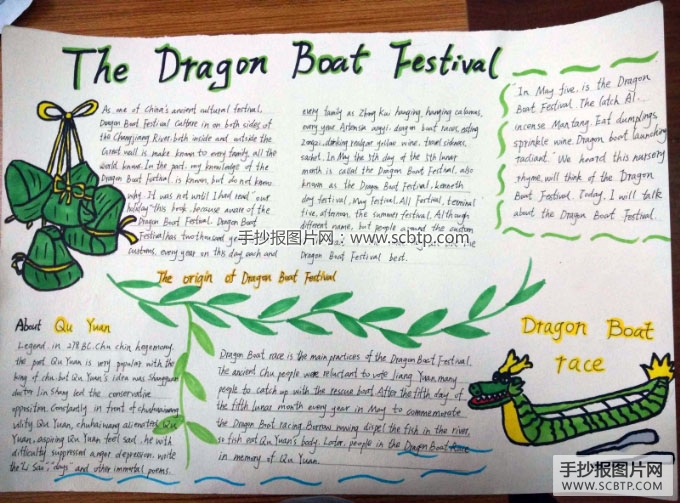 The Dragon Boat Festival
As one of China's ancient cultural festival,
Dragon Boat Festival Culture in on both sides of
the Changjiang River both inside and outside the
Great wall is make known to every family, all the
world knows. In the past my knowledge of the
Dragon Boat festival is known, but do not know
why. It was not until I had read our
holiday "this book, because aware of the
Dragon Boat Festival. Dragon Boat
Festival has two thousand
customs, every year on this day each and
every family as Zhong Kui hanging, hanging calamus,
every year Artemisia argyi, dragon boat races, eating
zongzi, drinking realgar yellow wine, travel sickness,
sachet. In May the 5th day of the 5th lunar
month is called the Dragon Boat Festival, also
known as the Dragon Boat Festival,
day festival, May Festival, Ali Festival,
the summer festival. Although
different name, but people around the custom
the
Dragon Boat Festival best.
"In May five, is the Dragon
Boat Festival. The Catch Ai,
incense Mantang. Eat dumplings,
sprinkle wine. Dragon boat launching
radiant." We heard this nursery
rhyme, will think of the Dragon
Boat Festival. Today, I will talk
about the Dragon Boat Festival.
手抄报图片网 www.scbtp.com
The origin of Dragon Boat Festival
About Qu Yuan
Legend in 278 BC. Chu chin hegemony,
the poet Qu Yuan is very popular with the
king of chu. but Qu Yuan's idea was Shangguan
doctor Jin Shang led the conservative
opposition. Constantly in front of chuhuaiwang
vility Qu Yuan, chuhuaiwang alienated Qu
Yuan, aspiring Qu Yuan feel sad, he with
difficulty suppressed anger depression, write
the "Li Sao", "days" and other immortal poems.
Dragon Boat race is the main practices of the Dragon Boat Festival.
The ancient Chu people were reluctant to vote Jiang Yuan, many
people to catch up with the rescue boat. After the fifth day of
the fifth lunar month every year in May to commemorate
the Dragon Boat racing. Borrow rowing dispel the fish in the river,
so fish eat Qu Yuan's body. Later, people in the Dragon Boat Race
in memory of Qu Yuan.
Dragon Boat
race
手抄报图片网
WWW.SCBTP.COM